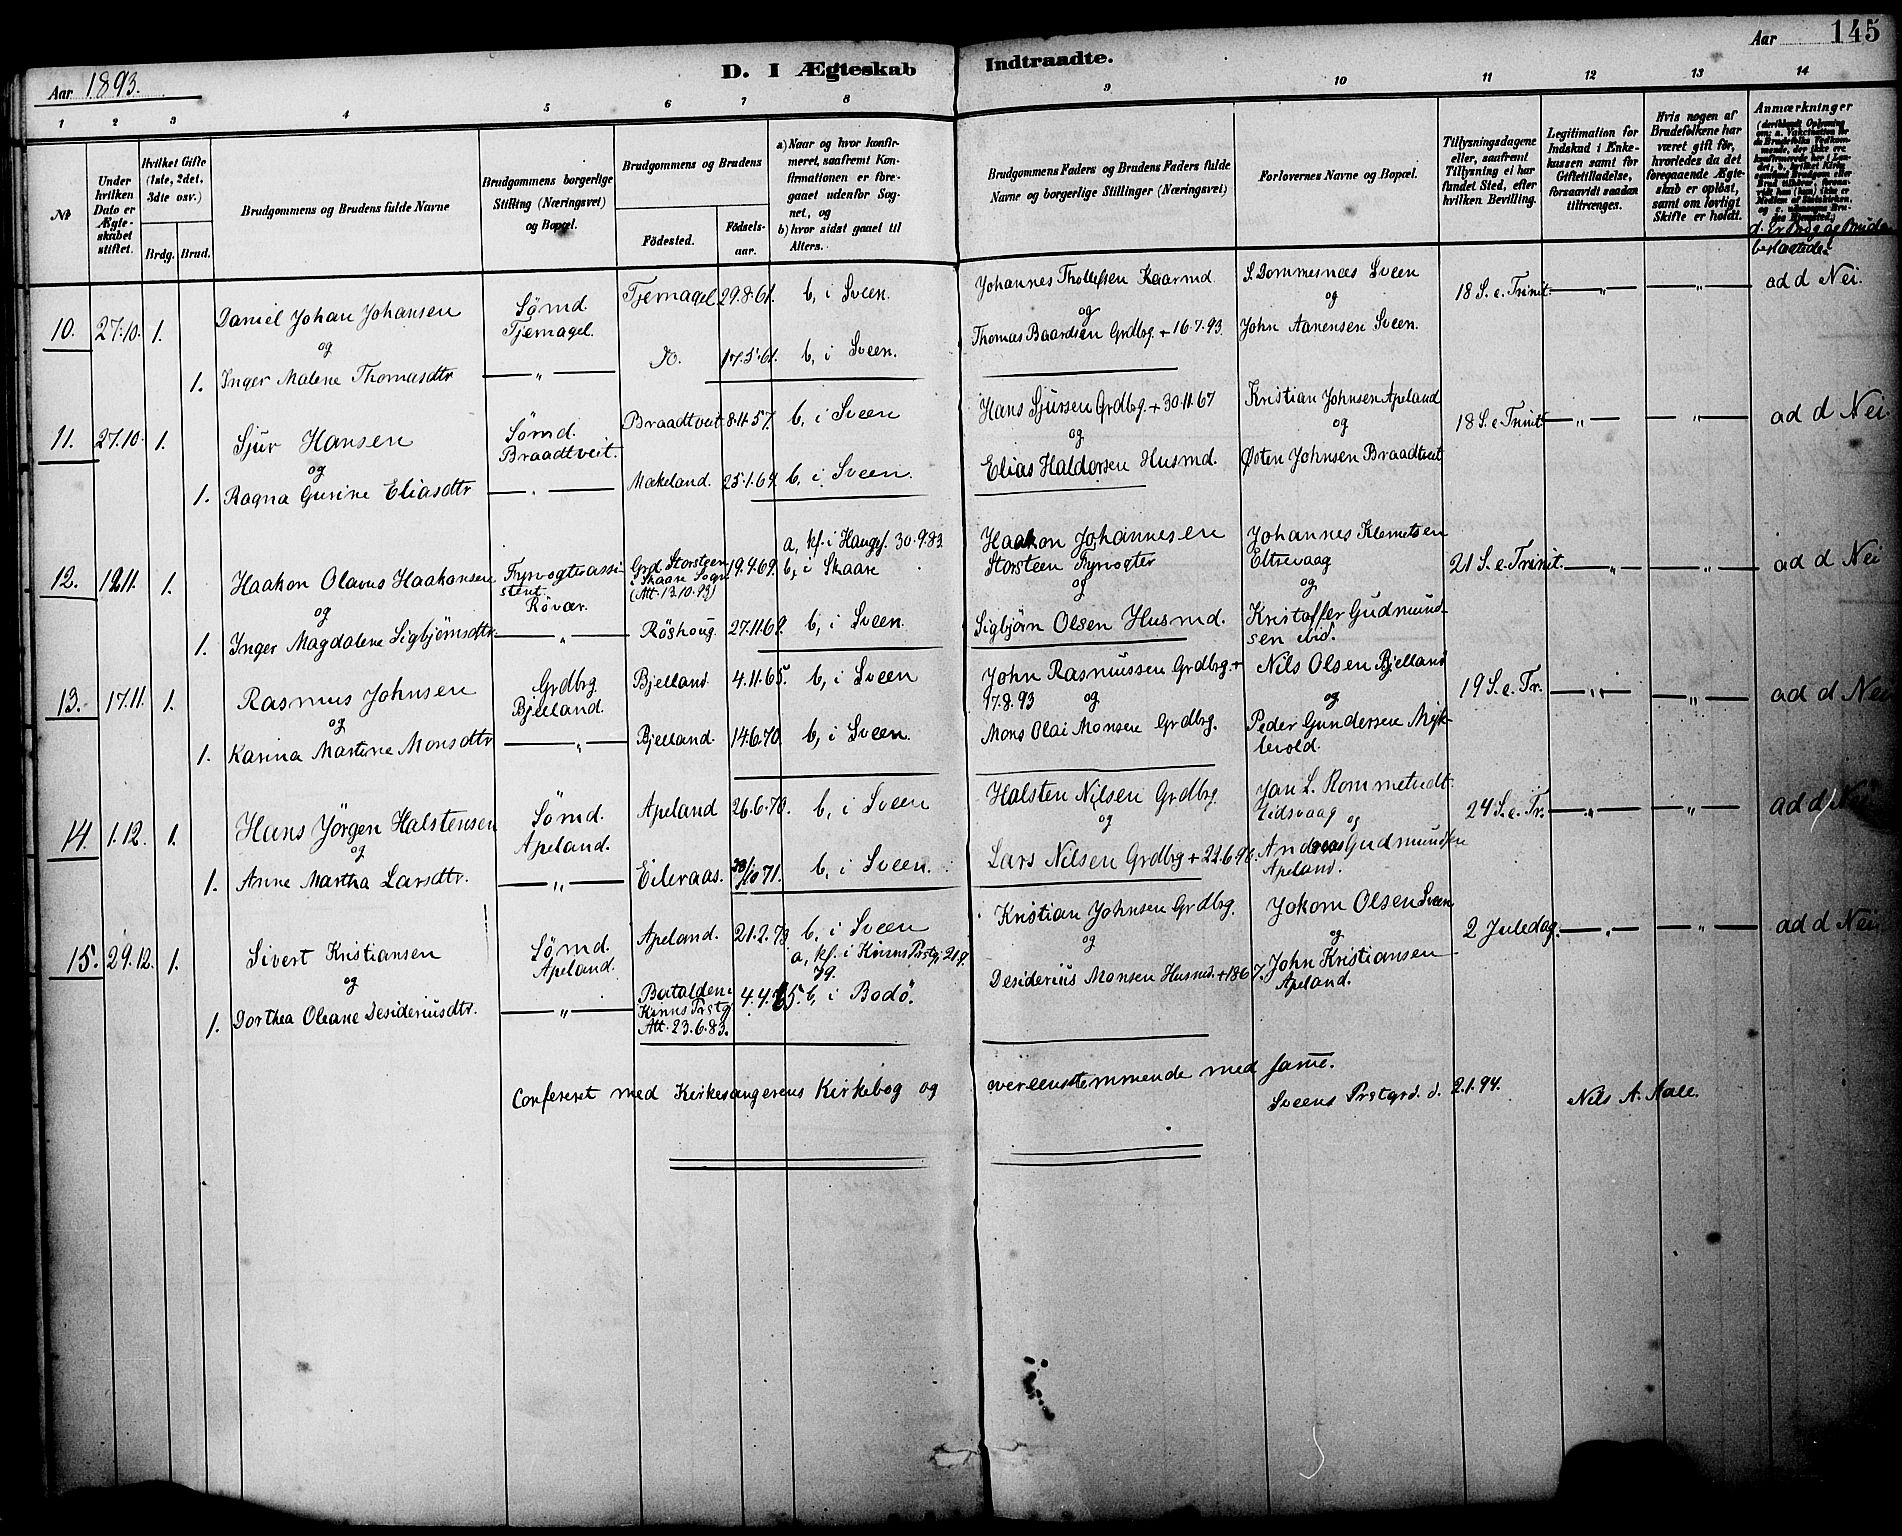 Aar 1893.
D. I Ægteskab Indtraadte.
Aar 145
1 2 3 4 5 6 7 8 9 10 11 12 13 14
№
Under hvilken Dato er Ægteskabet stiftet.
Hvilket Gifte (1ste, 2det, 3die osv.)
Brdg. Brud.
Brudgommens og Brudens fulde Navne
Brudgommens borgerlige Stilling (Næringsvei) og Bopæl.
Brudgommens og Brudens
Födested. Födselsaar.
a) Naar og hvor konfirmeret, saafremt Konfirmationen er foregaaet udenfor Sognet, og
b) hvor sidst gaaet til Alters.
Brudgommens Faders og Brudens Faders fulde Navne og borgerlige Stillinger (Næringsvei)
Forlovernes Navne og Bopæl.
Tillysningsdagene eller, saafremt Tillysning ei har fundet Sted, efter hvilken Bevilling.
Legitimation for Indskud i Enkekassen samt for Giftetilladelse, forsaavidt saadan tiltrænges.
Hvis nogen af Brudefolkene har været gift før, hvorledes da det foregaaende Ægteskab er oplöst, samt om lovligt Skifte er holdt.
Anmærkninger
10. 27.10. 1. Daniel Johan Johansen Sømd. Tjernagel. Tjernagel 29.8.61. b, i Sveen. Johannes Thollefsen Kaarmd S. Dommesnæs Sveen 18 S. e. Trinit. — " — — " — ad d Nei.
og og og
1. Inger Malene Thomasdtr — " — Do. 17.5.61. b, i Sveen. Thomas Baardsen Grdbrg + 16.7.93. John Aanensen Sveen.
11. 27.10. 1. Sjur Hansen Sømd. Braadtveit. Braadtveit 8.11.57. b, i Sveen Hans Sjursen Grdbg. + 30.11.67 Kristian Johnsen Apeland 18 S. e. Trinit — " — — " — ad d Nei
og og og
1. Ragna Gurine Eliasdtr — " — Makeland. 25.1.69. b, i Sveen. Elias Haldorsen Husmd. Østen Johnsen Braadtveit
12. 12.11. 1. Haakon Olavus Haakonsen Fyrvogterassistent. Røvær. Grd. Storsteen i Skaare Sogn (Att. 13.10.93) 19.4.69. a, kf. i Haugs. 30.9.83 b, i Skaare Haakon Johannesen Storsteen Fyrvogter Johannes Klemetsen Eltrevaag 21 S. e. Trinit. — " — — " — ad d Nei
og og og
1. Inger Magdalene Sigbjørnsdtr. — " — Røshoug. 27.11.69. b, i Sveen. Sigbjørn Olsen Husmd. Kristoffer Gudmundsen ibid.
13. 17.11. 1. Rasmus Johnsen Grdbrg Bjelland. Bjelland 4.11.65. b, i Sveen John Rasmussen Grdbrg. + 17.8.93 Nils Olsen Bjelland 19 S. e. Tr. — " — — " — ad d Nei
og og og
1. Karina Martine Monsdtr — " — Bjelland. 14.6.70. b, i Sveen. Mons Olai Monsen Grdbrg. Peder Gundersen Myklevold.
14. 1.12. 1. Hans Jörgen Halstensen Sømd. Apeland. Apeland 26.6.70. b, i Sveen Halsten Nilsen Grdbrg. Jan L. Rommetvedt Eidsvaag 24 S. e. Tr. — " — — " — ad d Nei
og og og
1. Anne Martha Larsdtr. — " — Eileraas. 30/10 71. b, i Sveen. Lars Nilsen Grdbrg + 22.6.90. Andreas Gudmundsen Apeland.
15. 29.12. 1. Sivert Kristiansen Sømd. Apeland. Apeland. 21.2.73. b, i Sveen Kristian Johnsen Grdbrg. Jokom Olsen Sveen 2 Juledag. — " — — " — ad d Nei
og og og
1. Dorthea Oleane Desideriusdtr. — " — Batalden Kinns Prstg. Att. 23.6.83. 4.4.65. a, kf. i Kinns Prstgj. b, i Bodö. Desiderius Monsen Husmd. + 1867. John Kristiansen Apeland.
Confereret med Kirkesangerens Kirkebog og overeensstemmende med samme.
Sveens Prstgrd. d. 2.1.94. Nils A. Aale.